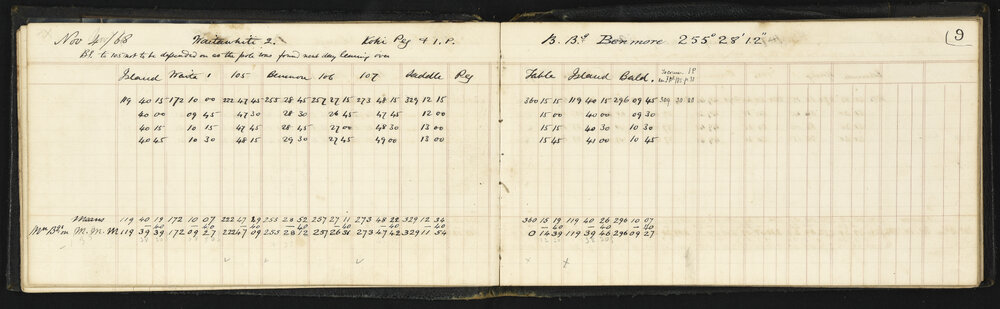 Nov 4/68 Waitawhite 2. Koki Peg + 1. P. B. Bg Benmore 255° 28' 12" 9
Bg. to 105 not to be depended on as the pole was found next day leaning over
Island Waite 1 105 Benmore 106 107 Saddle Peg Table Island Bald.
119 40 15 172 10 00 222 47 45 255 28 45 257 27 15 273 48 15 329 12 15 360 15 15 119 40 15 296 09 45 309 30 20
40 00 09 45 47 30 28 30 26 45 47 45 12 00 15 00 40 00 09 30
40 15 10 15 47 45 28 45 27 00 48 30 13 00 15 15 40 30 10 30
40 45 10 30 48 15 29 30 27 45 49 00 13 00 15 45 41 00 10 45
Means 119 40 19 172 10 07 222 47 49 255 28 52 257 27 11 273 48 22 329 12 34 360 15 19 119 40 26 296 10 07
-40 -40 -40 -40 -40 -40 -40 -40 -40 -40
Mn Bgs in M. M. M 119 39 39 172 09 27 222 47 09 255 28 12 257 26 31 273 47 42 329 11 54 0 14 39 119 39 46 296 09 27